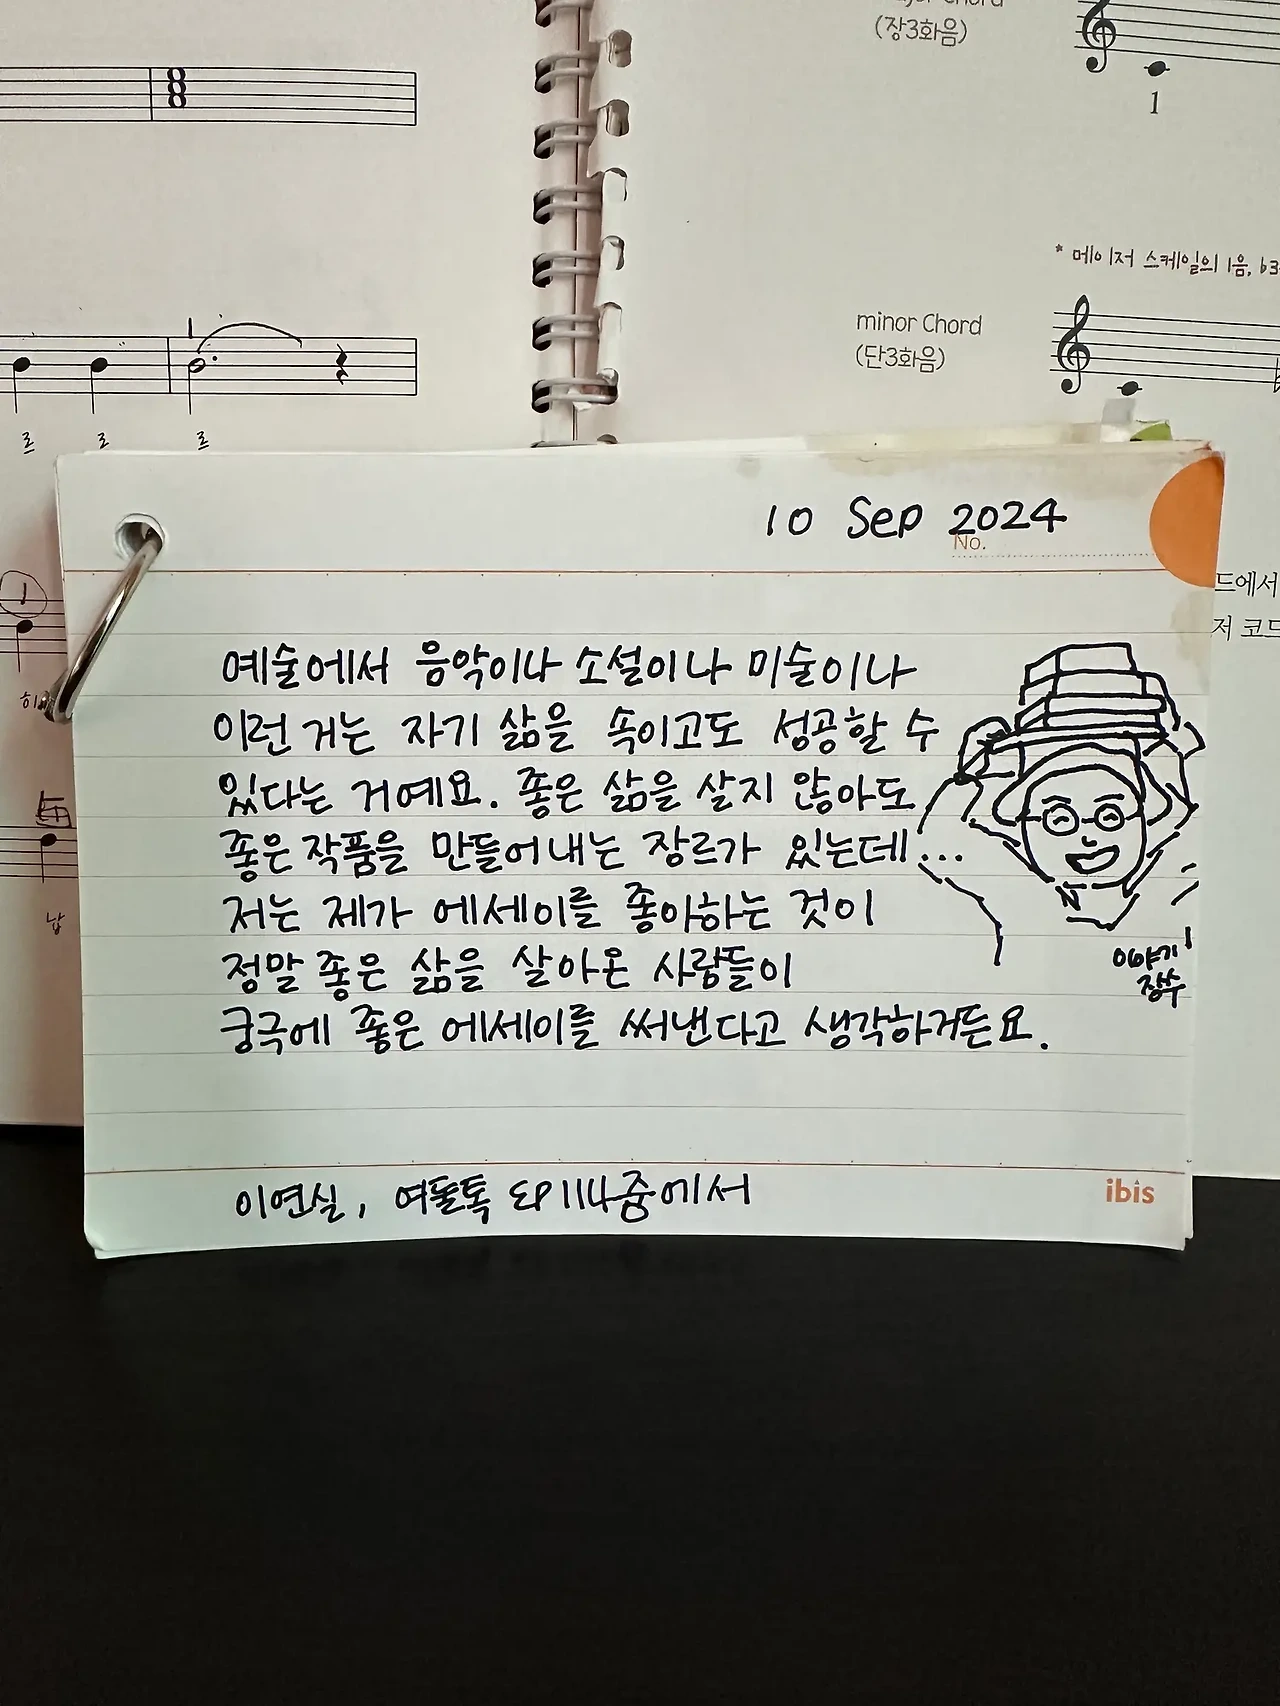 (장3화음)
1
* 메이저 스케일의 1음, b3
minor Chord
(단3화음)
르 르 르
10 Sep 2024
No.
1
드에서
저 코드
예술에서 음악이나 소설이나 미술이나
이런 거는 자기 삶을 속이고도 성공할 수
있다는 거예요. 좋은 삶을 살지 않아도
좋은 작품을 만들어내는 장르가 있는데...
저는 제가 에세이를 좋아하는 것이
정말 좋은 삶을 살아온 사람들이
궁극에 좋은 에세이를 써낸다고 생각하거든요.
이야기
장수
납
이연실, 여둘톡 EP114중에서
ibis